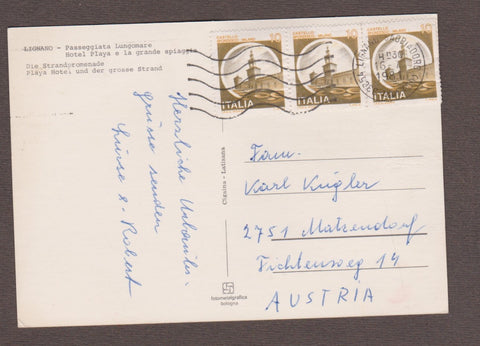 LIGNANO - Passeggiata Lungomare
Hotel Playa e la grande spiaggia
Die Strandpromenade
Playa Hotel und der grosse Strand
Herzliche Urlaubs-
grüsse senden
Luise & Robert
Cigaina - Latisana
fotometalgrafica
bologna
CASTELLO
MILANO
10
ITALIA
CASTELLO
MILANO
10
ITALIA
10
ITALIA
Fam.
Karl Kugler
2751 Matzendorf
Fichtenweg 14
AUSTRIA